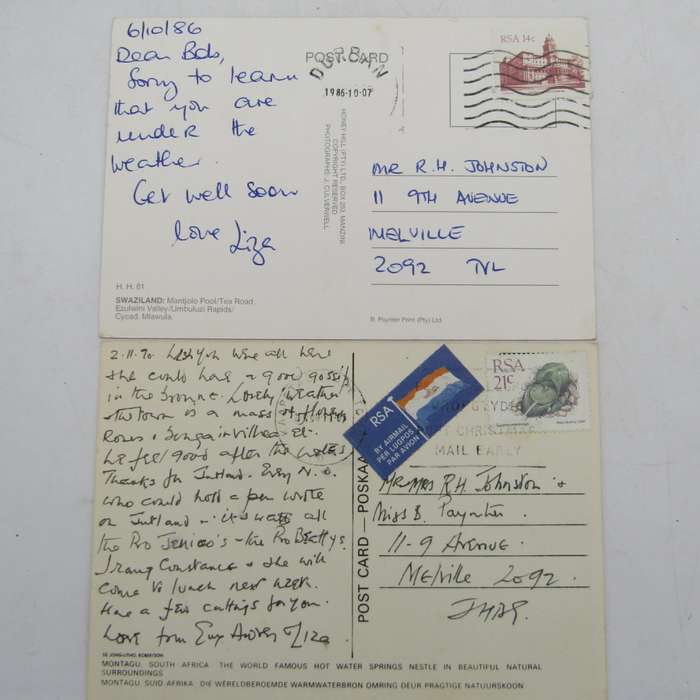 6/10/86
Dear Bob,
Sorry to learn
that you are
under the
weather.
Get well soon
love Liza
H. H. 61
SWAZILAND: Mantjolo Pool/Tea Road
Ezulwini Valley/Umbuluzi Rapids/
Cycad, Mlawula.
POST CARD
DURBAN
1986-10-07
HONEY-HILL (PTY) LTD, BOX 210, MANZINI
COPYRIGHT RESERVED
PHOTOGRAPHS: J. CULVERWELL
RSA 14c
MR R.H. JOHNSTON
11 9TH AVENUE
MELVILLE
2092 TVL
B. Poynter Print (Pty) Ltd.
2.11.90 Wish you were all here
she could have a good gossip
in the Lovely weather
the town is a mass of flowers
Roses & Bougainvillea etc.
We feel good after the
Thanks for Jutland. Every N.O.
who could hold a pen wrote
on Jutland - it was all
the Pro Jellico's - the Pro Beattys.
Constance & she will
come to lunch next week.
Have a few cuttings for you.
Love from Liza
MONTAGU, SOUTH AFRICA · THE WORLD FAMOUS HOT WATER SPRINGS NESTLE IN BEAUTIFUL NATURAL
SURROUNDINGS
MONTAGU, SUID-AFRIKA · DIE WÊRELDBEROEMDE WARMWATERBRON OMRING DEUR PRAGTIGE NATUURSKOON
POST CARD — POSKAART
RSA
BY AIRMAIL
PER LUGPOS
PAR AVION
RSA
21c
CHRISTMAS
MAIL EARLY
Mr Mrs R.H. Johnston &
Miss B. Paynter.
11-9 Avenue.
Melville 2092.
JHBG.